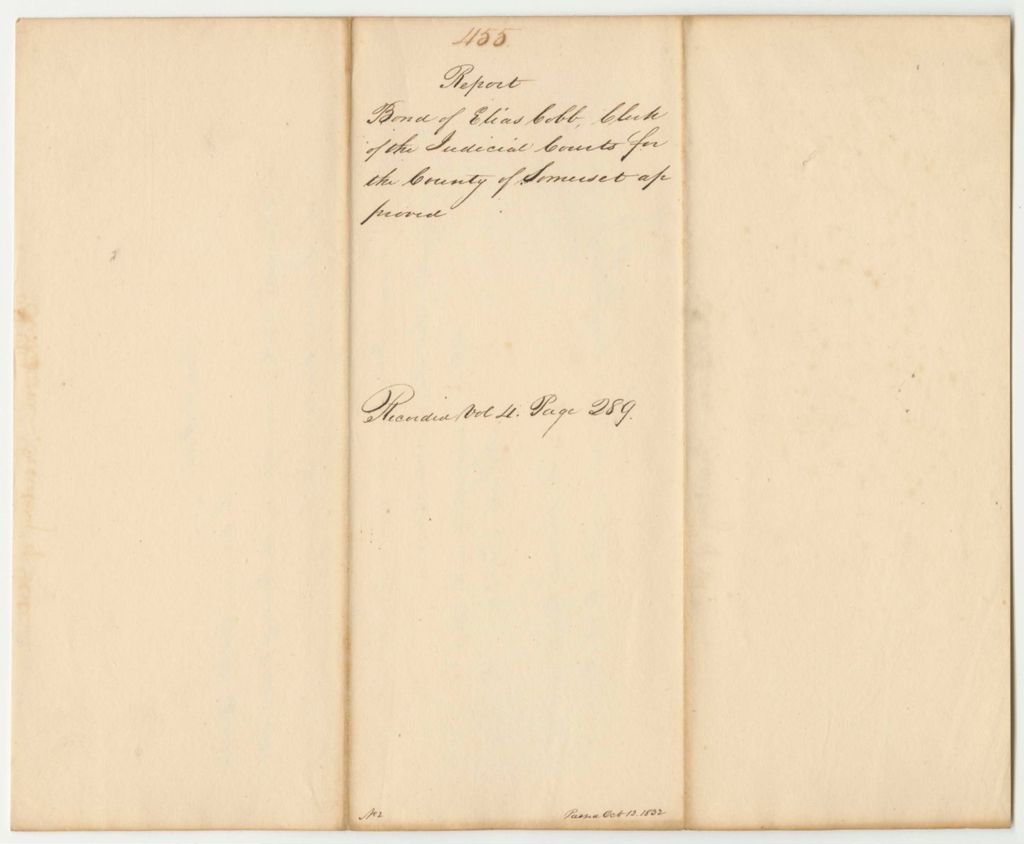 455
Report
Bond of Elias Cobb, Clerk
of the Judicial Courts for
the County of Somerset ap
proved
Recorded Vol 4. Page 289.
No 2
Passed Oct 13. 1832